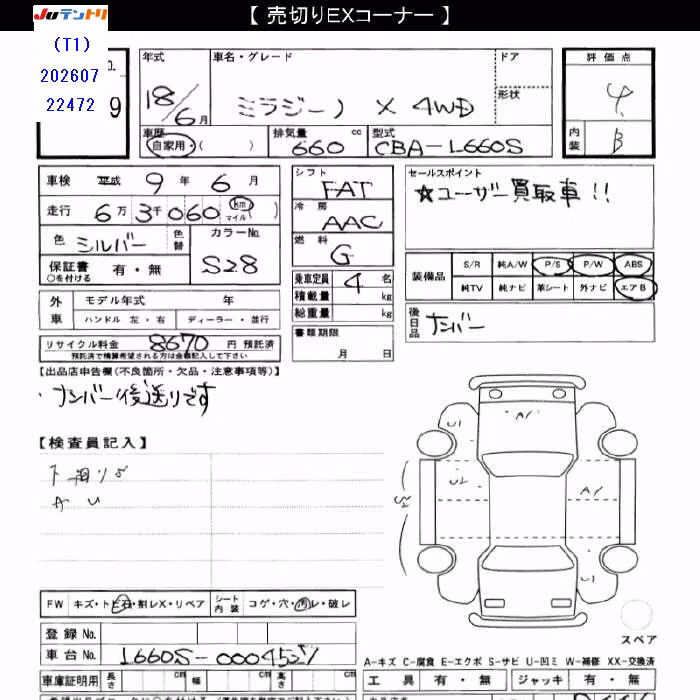 【 売切りEXコーナー 】
JUテントリ
(T1)
202607
22472
o.
9
年式
18/6月
車名・グレード
ミラジーノ X 4WD
ドア
形状
評価点
4
内装
B
車歴
自家用・( )
排気量 cc
660
型式
CBA-L660S
車検 平成 9 年 6 月
走行 6万 3千060 km マイル ( )
色 シルバー 色替
カラーNo.
S28
保証書 有・無
○を付ける
外車 モデル年式 年
ハンドル 左・右 ディーラー・並行
リサイクル料金 8670 円 預託済
預託済で精算希望される方は金額記入して下さい
シフト
FAT
冷房
AAC
燃料
G
乗車定員 4 名
積載量 kg
総重量 kg
書類期限
月 日
セールスポイント
☆ユーザー買取車!!
装備品
S/R 純A/W P/S P/W ABS
純TV 純ナビ 革シート 外ナビ エアB
後日品
ナンバー
【出品店申告欄(不良箇所・欠品・注意事項等)】
・ナンバー後送りです
【検査員記入】
A U
U1
A1
U2
A1
S2
U1
スペア
FW キズ・トビ石・割レX・リペア
シート内装 コゲ・穴・汚レ・破レ
登録 No.
車台 No. L660S-0004557
車庫証明用 長さ cm 幅 cm 高さ cm
A-キズ C-腐食 E-エクボ S-サビ U-凹ミ W-補修 XX-交換済
工具 有・無 ジャッキ 有・無